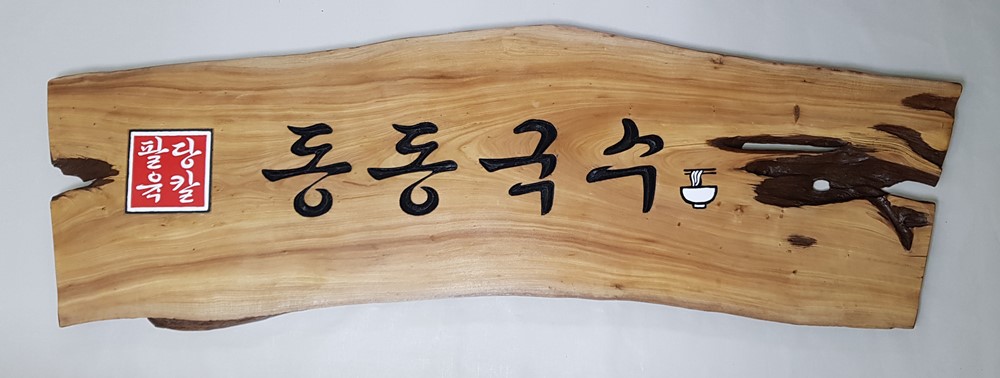 팔당
육칼
동동국수